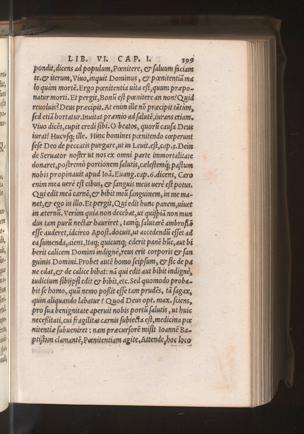 LIB. VI. CAP. I. 199
pondit, dicens ad populum, Pœnitere, & saluum faciam
te. & iterum, Viuo, inquit Dominus, & pœnitentiā ma
lo quàm mortē. Ergo pœnitentia uita est, quum præpo-
natur morti. Et pergit, Bonū est pœnitere an non? Quid
reuoluis? Deus præcipit. At enim ille nō præcipit tātùm,
sed etiā hortatur. Inuitat præmio ad salutē, iurans etiam.
Viuo dicēs, cupit credi sibi. O beatos, quorū causa Deus
iurat! Hucusq; ille. Hinc homines pœnitendo cœperunt
sese Deo de peccatis purgare, ut in Leuit. est, cap. 5. Dein
de Seruator noster ut nos ex omni parte immortalitate
donaret, postremò portionem salutis, cælestemq́; pastum
nobis propinauit apud Ioā. Euang. cap. 6. dicens, Caro
enim mea uerè est cibus, & sanguis meus uerè est potus.
Qui edit meā carnē, & bibit meū sanguinem, in me ma-
net, & ego in illo. Et pergit, Qui edit hunc panem, uiuet
in æternū. Verùm quia non decebat, ut quispiā non mun
dus tam purū nectar hauriret, tamq́; salutarē ambrosiā
esse auderet, idcirco Apost. docuit, ut accedendū esset ad
ea sumenda, ciens, Itaq; quicunq; ederit panē hūc, aut bi
berit calicem Domini indignè, reus erit corporis & san
guinis Domini. Probet autē homo seipsum, & sic de pa
ne edat, & de calice bibat: nā qui edit aut bibit indignè,
iudicium sibiipsi edit & bibit, etc. Sed quomodo proba-
bit se homo, quū nemo possit esse tam prudēs, tā sagax,
quin aliquando labatur? Quod Deus opt. max. sciens,
pro sua benignitate aperuit nobis portū salutis, ut huic
necessitati, cui fragilitas carnis subiecta est, medicina pœ
nitentiæ subueniret: nam præcursorē misit Ioannē Ba-
ptistam clamantē, Pœnitentiam agite. Attende, hoc loco